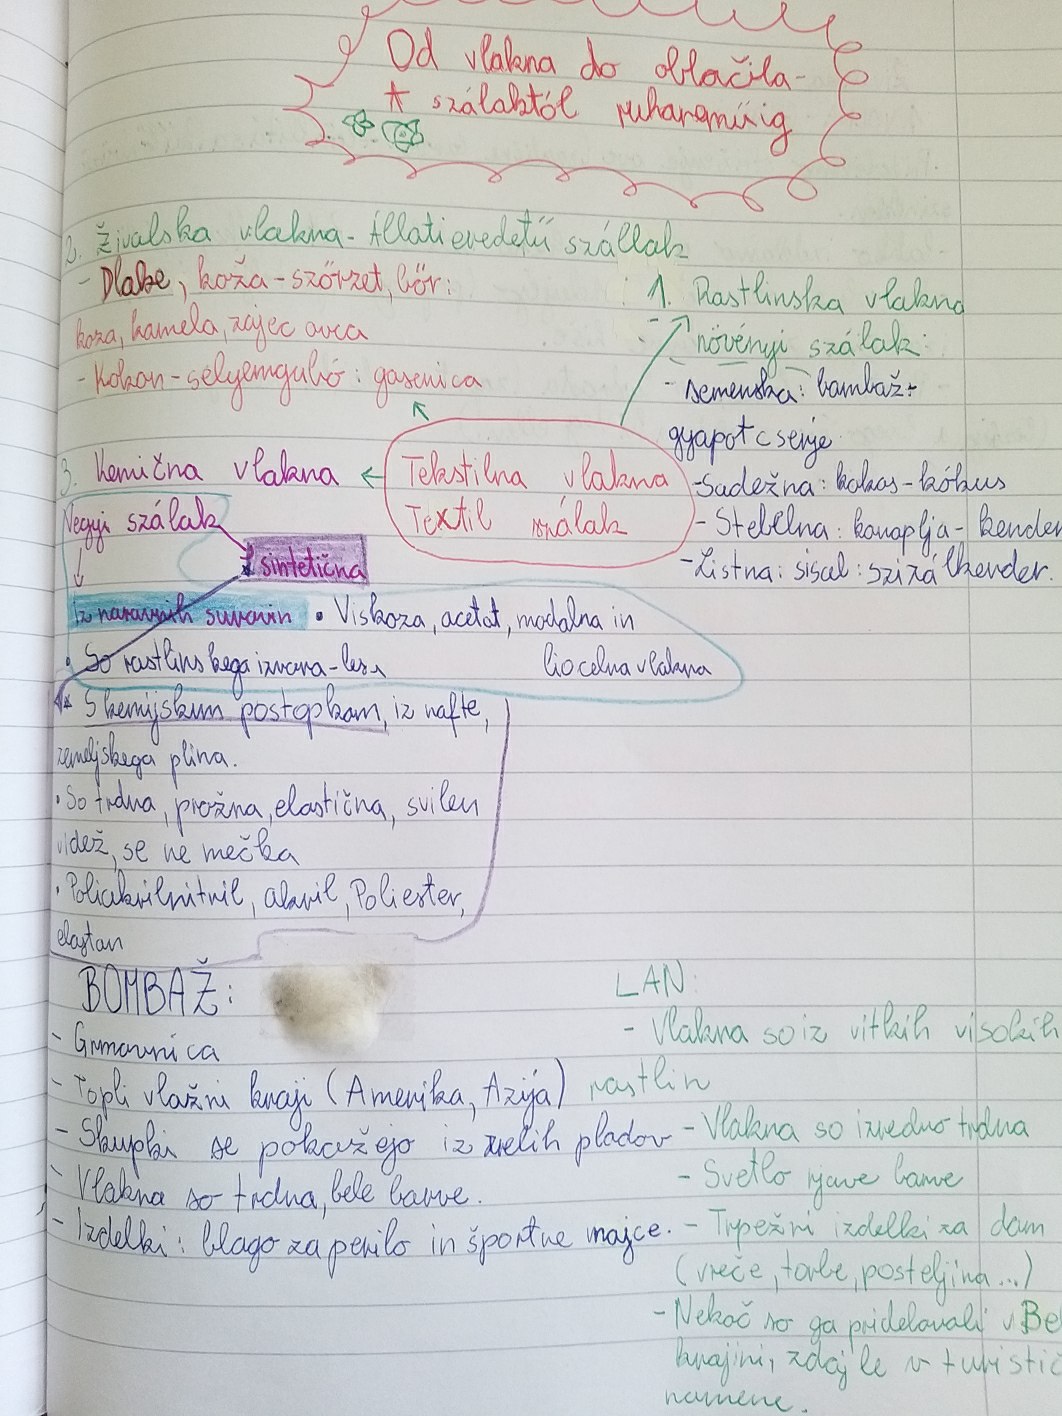 Od vlakna do oblačila-
A szálaktól ruhaneműig
2. Živalska vlakna- Állati eredetű szállak
- Dlake, koža-szőrzet, bőr:
koza, kamela, zajec ovca
- Kokon-selyemgubó: gosenica
1. Rastlinska vlakna
növényi szálak:
- semenska: bambaž-
gyapotcserje
- Sadežna: kokos-kókus
- Stebelna: konoplja- kender
- Listna: sisal: szizálkender.
Tekstilna vlakna
Textil szálak
3. Kemična vlakna
Vegyi szálak
* sintetična
Iz naravnih surovin • Viskoza, acetat, modalna in
liocelna vlakna
• So rastlinskega izvora-les
* S kemijskim postopkom, iz nafte,
zemeljskega plina.
• So trdna, prožna, elastična, svilen
videž, se ne mečka
• Poliakrilnitril, akril, Poliester,
elastan
BOMBAŽ:
- Grmovnica
- Topli vlažni kraji (Amerika, Azija)
- Skupki se pokažejo iz zrelih pladov
- Vlakna so trdna, bele barve.
- Izdelki: blago za perilo in športne majce.
LAN:
- Vlakna so iz vitkih visokih
rastlin
- Vlakna so izredno trdna
- Svetlo rjave barve
- Trpežni izdelki za dom
(vreče, torbe, posteljina...)
- Nekoč so ga pridelovali v Be
krajini, zdaj le v turistič
namene.